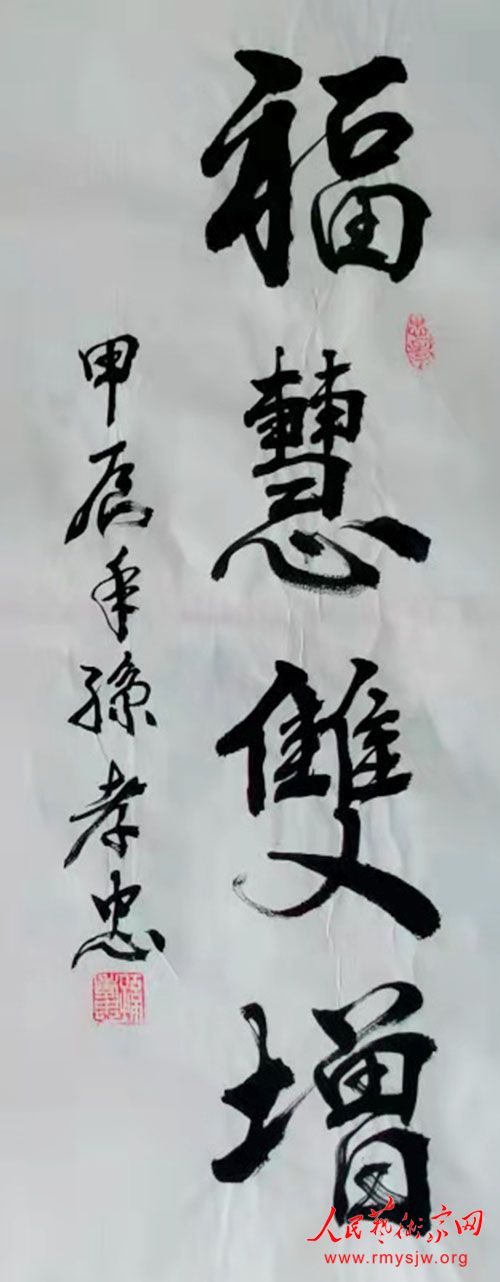 福慧雙增
甲辰年孫孝忠
人民藝術家网
www.rmysjw.org